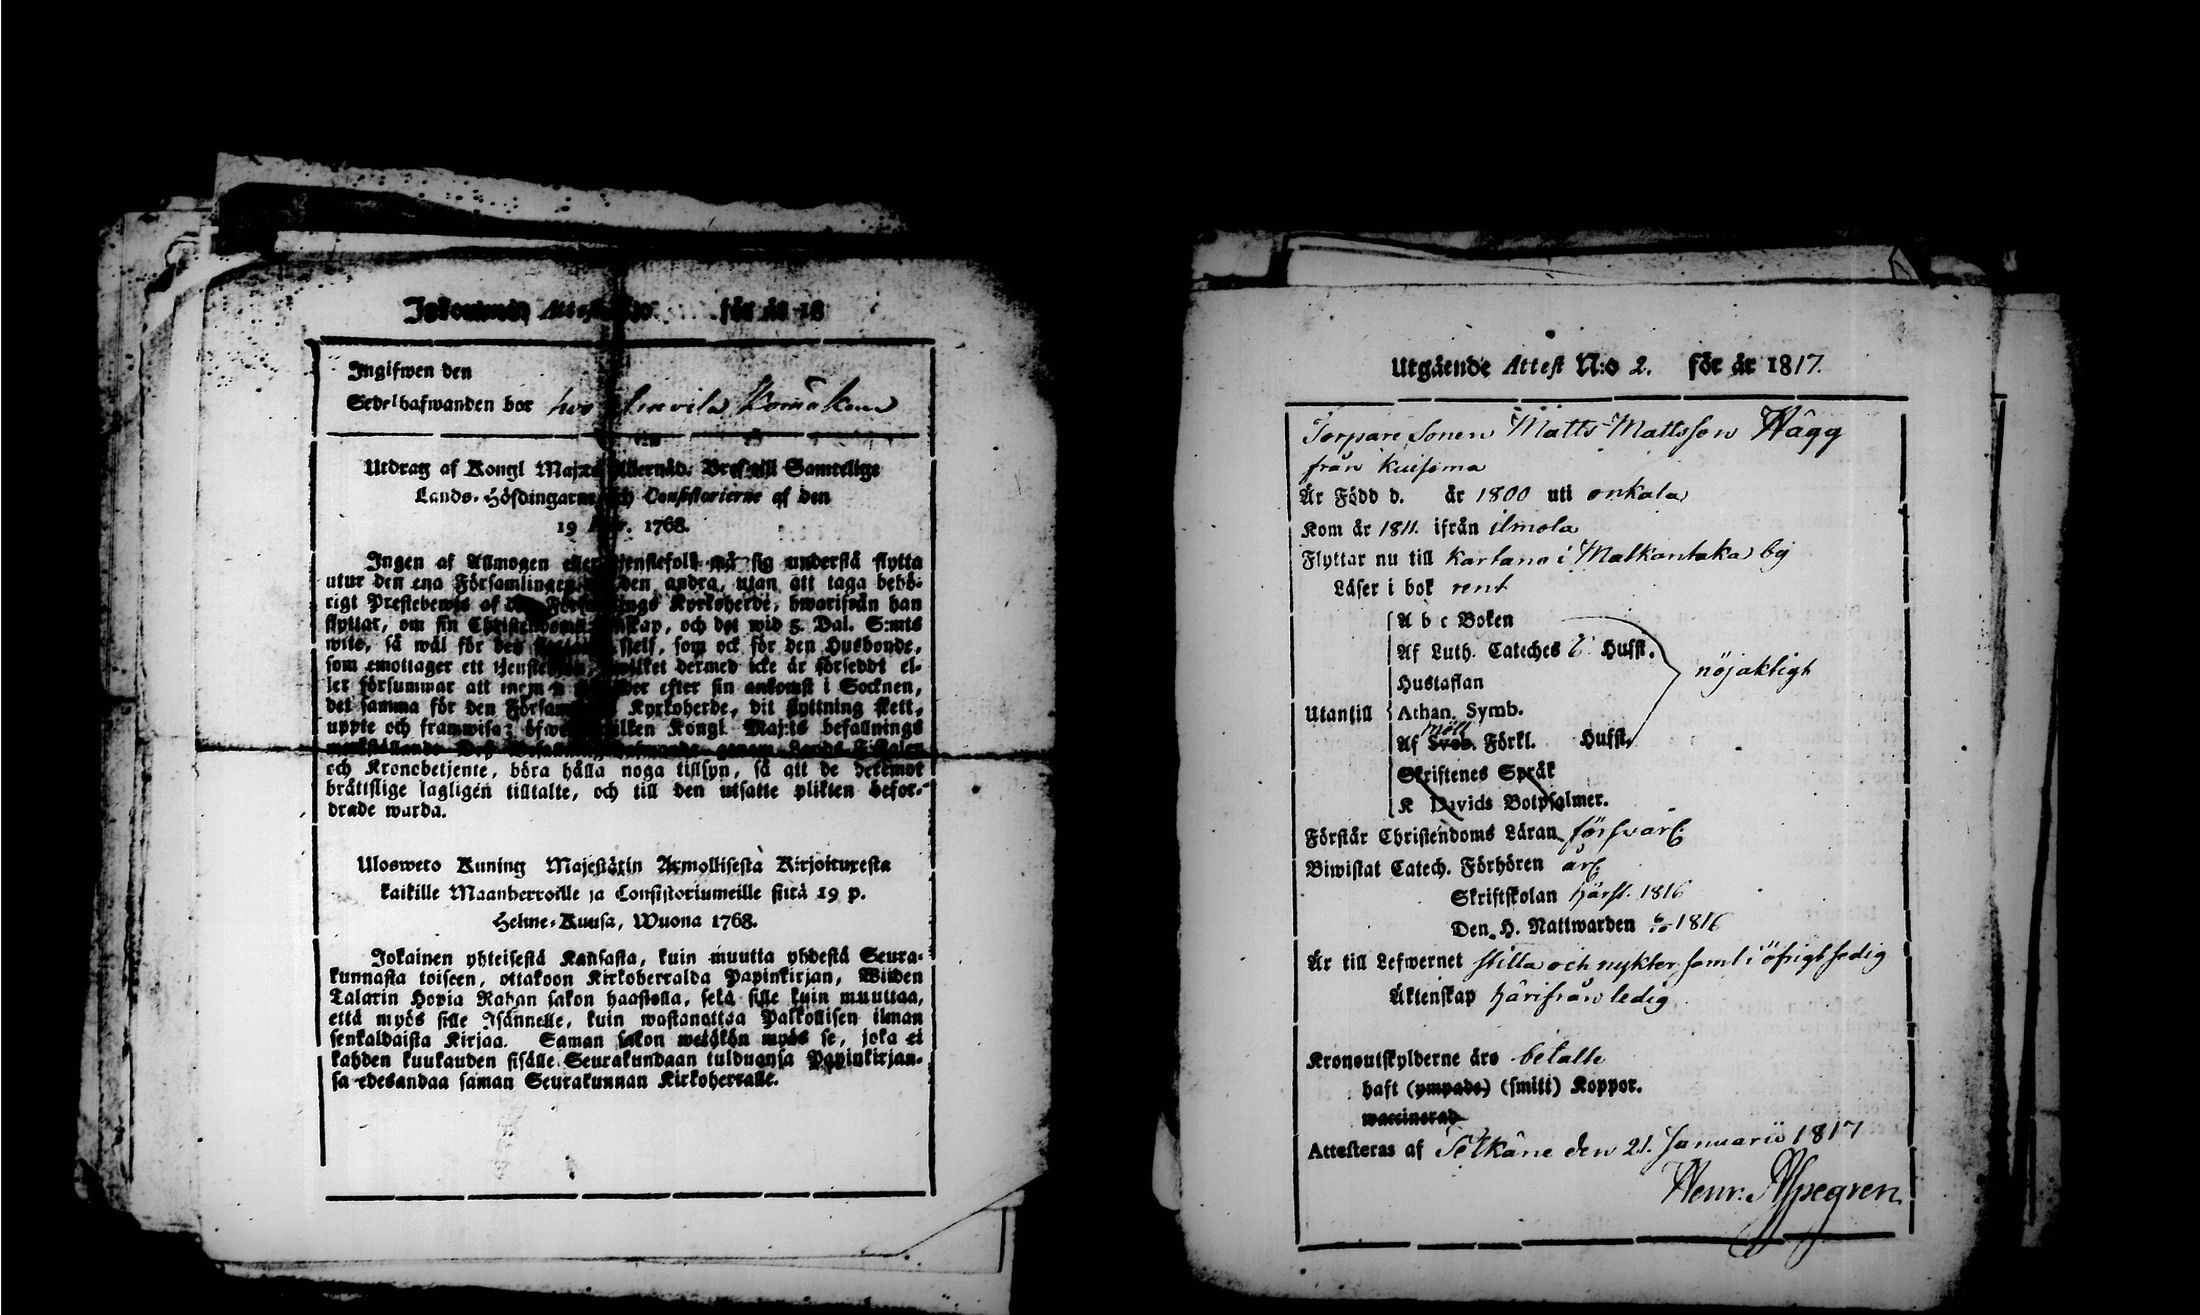 Inkommen Attest N:o för år 18
Ingifwen den
Sedelhafwanden bor hos
Utdrag af Kongl Maj:ts Allernåd. Bref till Samtelige
Lands-Höfdingarne och Consistorierne af den
19 1768.
Ingen af Allmogen eller tjenstefolk må sig understå flytta
utur den ena Församlingen den andra, utan att taga behö-
rigt Prestebewis af Församlings Kyrkoherde, hwarifrån han
flyttar, om sin Christendoms kunskap, och det wid 5. Dal. S:mts
wite, så wäl för den sjelf, som ock för den Husbonde,
som emottager ett tjenstehion, hwilket dermed icke är försedt el-
ler försummar att inom efter sin ankomst i Socknen,
det samma för den Församlings Kyrkoherde, dit flyttning skett,
uppte och framwisa; öfwer hwilken Kongl Maj:ts befallnings
och Kronobetjente, böra hålla noga tillsyn, så att de deremot
bråttslige lagligen tilltalte, och till den utsatte plikten befor-
drade warda.
Uloswetö Kuning Majestätin Armollisesta Kirjoituxesta
kaikille Maanherroille ja Consistoriumeille siitä 19 p.
Helme-Kuusa, Wuona 1768.
Jokainen yhteisestä Kansasta, kuin muutta yhdestä Seura-
kunnasta toiseen, ottakoon Kirkoherralda Papinkirjan, Wiiden
Talarin Hopia Rahan sakon haastolla, sekä sille kuin muuttaa,
että myös sille Isännelle, kuin wastanottaa Palkollisen ilman
senkaldaista Kirjaa. Saman sakon wetäkön myös se, joka ei
kahden kuukauden sisälle Seurakundaan tulduansa Papinkirjan-
sa edesandaa saman Seurakunnan Kirkoherralle.
Utgående Attest N:o 2. för år 1817.
Torpare Sonen Matts Mattsson Hägg
från Kuisema
Är Född d. år 1800 uti onkala
Kom år 1811. ifrån ilmola
Flyttar nu till Kartano i Matkantaka by
Läser i bok rent
A b c Boken
Af Luth. Cateches Husfl.
Hustaflan
Utantill Athan. Symb. nöjaktigt
Af Sveb. Förkl. Husfl.
Skriftenes Språk
K Davids Botpsalmer.
Förstår Christendoms Läran försvarl.
Biwistat Catech. Förhören årl.
Skriftskolan härst. 1816
Den H. Nattwarden 1816
Är till Lefwernet stilla och nykter samt i öfrigt sedig
Äktenskap härifrån ledig
Kronoutskylderne äro betalte
haft (ympade) (smitt) Koppor.
waccinerad
Attesteras af Selkäne den 21. Januarii 1817
Henr: Alpegren